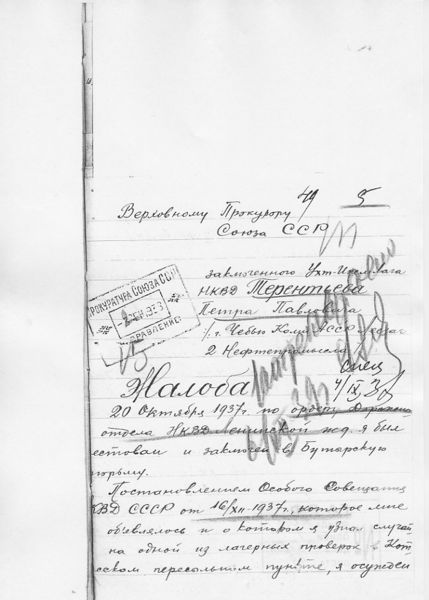 49 5
Верховному Прокурору
Союза ССР
заключенного Ухт-Ижем Лага
НКВД Терентьева
Петра Павловича
г. Чебью Коми АССР
2 Нефтепромысла
ПРОКУРАТУРА СОЮЗА ССР
ОТПРАВЛЕНИЕ
Спец
4/IX 3
Жалоба
20 Октября 1937г. по ордеру Дорожно
отдела НКВД Ленинской жд. я был
естован и заключен в Бутырскую
юрьму.
Постановлением Особого Совещания
КВД СССР от 16/XII-1937г., которое мне
объявлялось и о котором я узнал случай
на одной из лагерных проверок в Кот
сском пересыльном пункте, я осужден